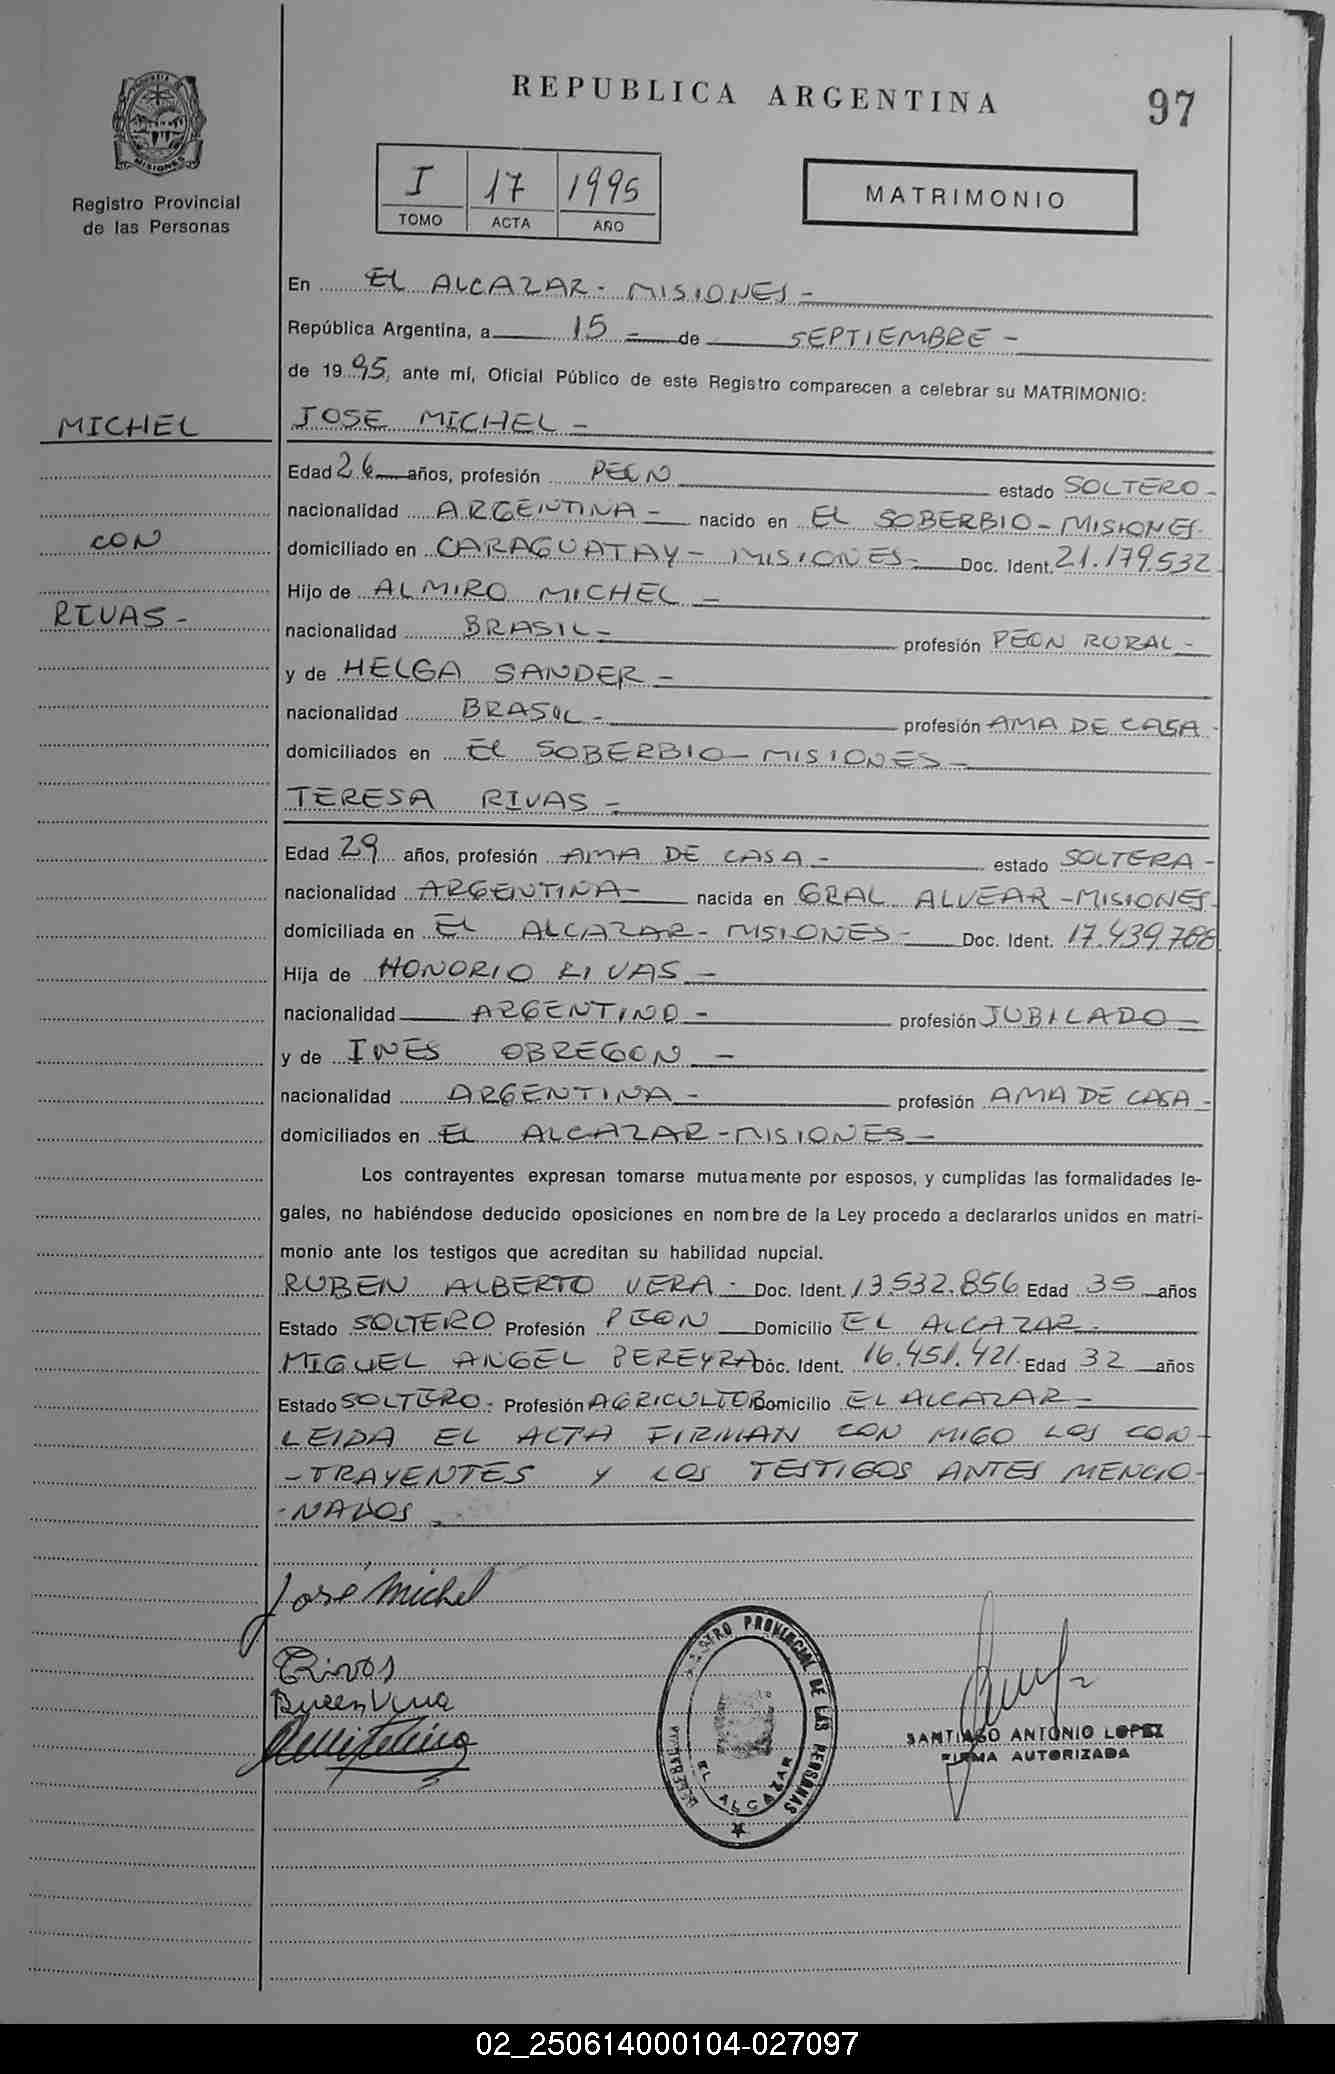 REPUBLICA ARGENTINA
97
MISIONES
Registro Provincial
de las Personas
I 17 1995
TOMO ACTA AÑO
MATRIMONIO
En EL ALCAZAR - MISIONES -
República Argentina, a 15 - de SEPTIEMBRE -
de 1995, ante mí, Oficial Público de este Registro comparecen a celebrar su MATRIMONIO:
MICHEL
CON
RIVAS -
JOSE MICHEL -
Edad 26 años, profesión PEON estado SOLTERO -
nacionalidad ARGENTINA - nacido en EL SOBERBIO - MISIONES.
domiciliado en CARAGUATAY - MISIONES - Doc. Ident. 21.179.532
Hijo de ALMIRO MICHEL -
nacionalidad BRASIL - profesión PEON RURAL -
y de HELGA SANDER -
nacionalidad BRASIL - profesión AMA DE CASA -
domiciliados en EL SOBERBIO - MISIONES -
TERESA RIVAS -
Edad 29 años, profesión AMA DE CASA - estado SOLTERA -
nacionalidad ARGENTINA - nacida en GRAL. ALVEAR - MISIONES
domiciliada en EL ALCAZAR - MISIONES - Doc. Ident. 17.439.788
Hija de HONORIO RIVAS -
nacionalidad ARGENTINO - profesión JUBILADO -
y de INES OBREGON -
nacionalidad ARGENTINA - profesión AMA DE CASA -
domiciliados en EL ALCAZAR - MISIONES -
Los contrayentes expresan tomarse mutuamente por esposos, y cumplidas las formalidades le-
gales, no habiéndose deducido oposiciones en nombre de la Ley procedo a declararlos unidos en matri-
monio ante los testigos que acreditan su habilidad nupcial.
RUBEN ALBERTO VERA - Doc. Ident. 13.532.856 Edad 35 años
Estado SOLTERO Profesión PEON Domicilio EL ALCAZAR -
MIGUEL ANGEL PEREYRA Doc. Ident. 16.451.421 Edad 32 años
Estado SOLTERO - Profesión AGRICULTOR Domicilio EL ALCAZAR -
LEIDA EL ACTA FIRMAN CON MIGO LOS CON-
-TRAYENTES Y LOS TESTIGOS ANTES MENCIO-
-NADOS -
José Michel
TRivas
Ruben Vera
REGISTRO PROVINCIAL DE LAS PERSONAS
EL ALCAZAR
SANTIAGO ANTONIO LOPEZ
FIRMA AUTORIZADA
02_250614000104-027097